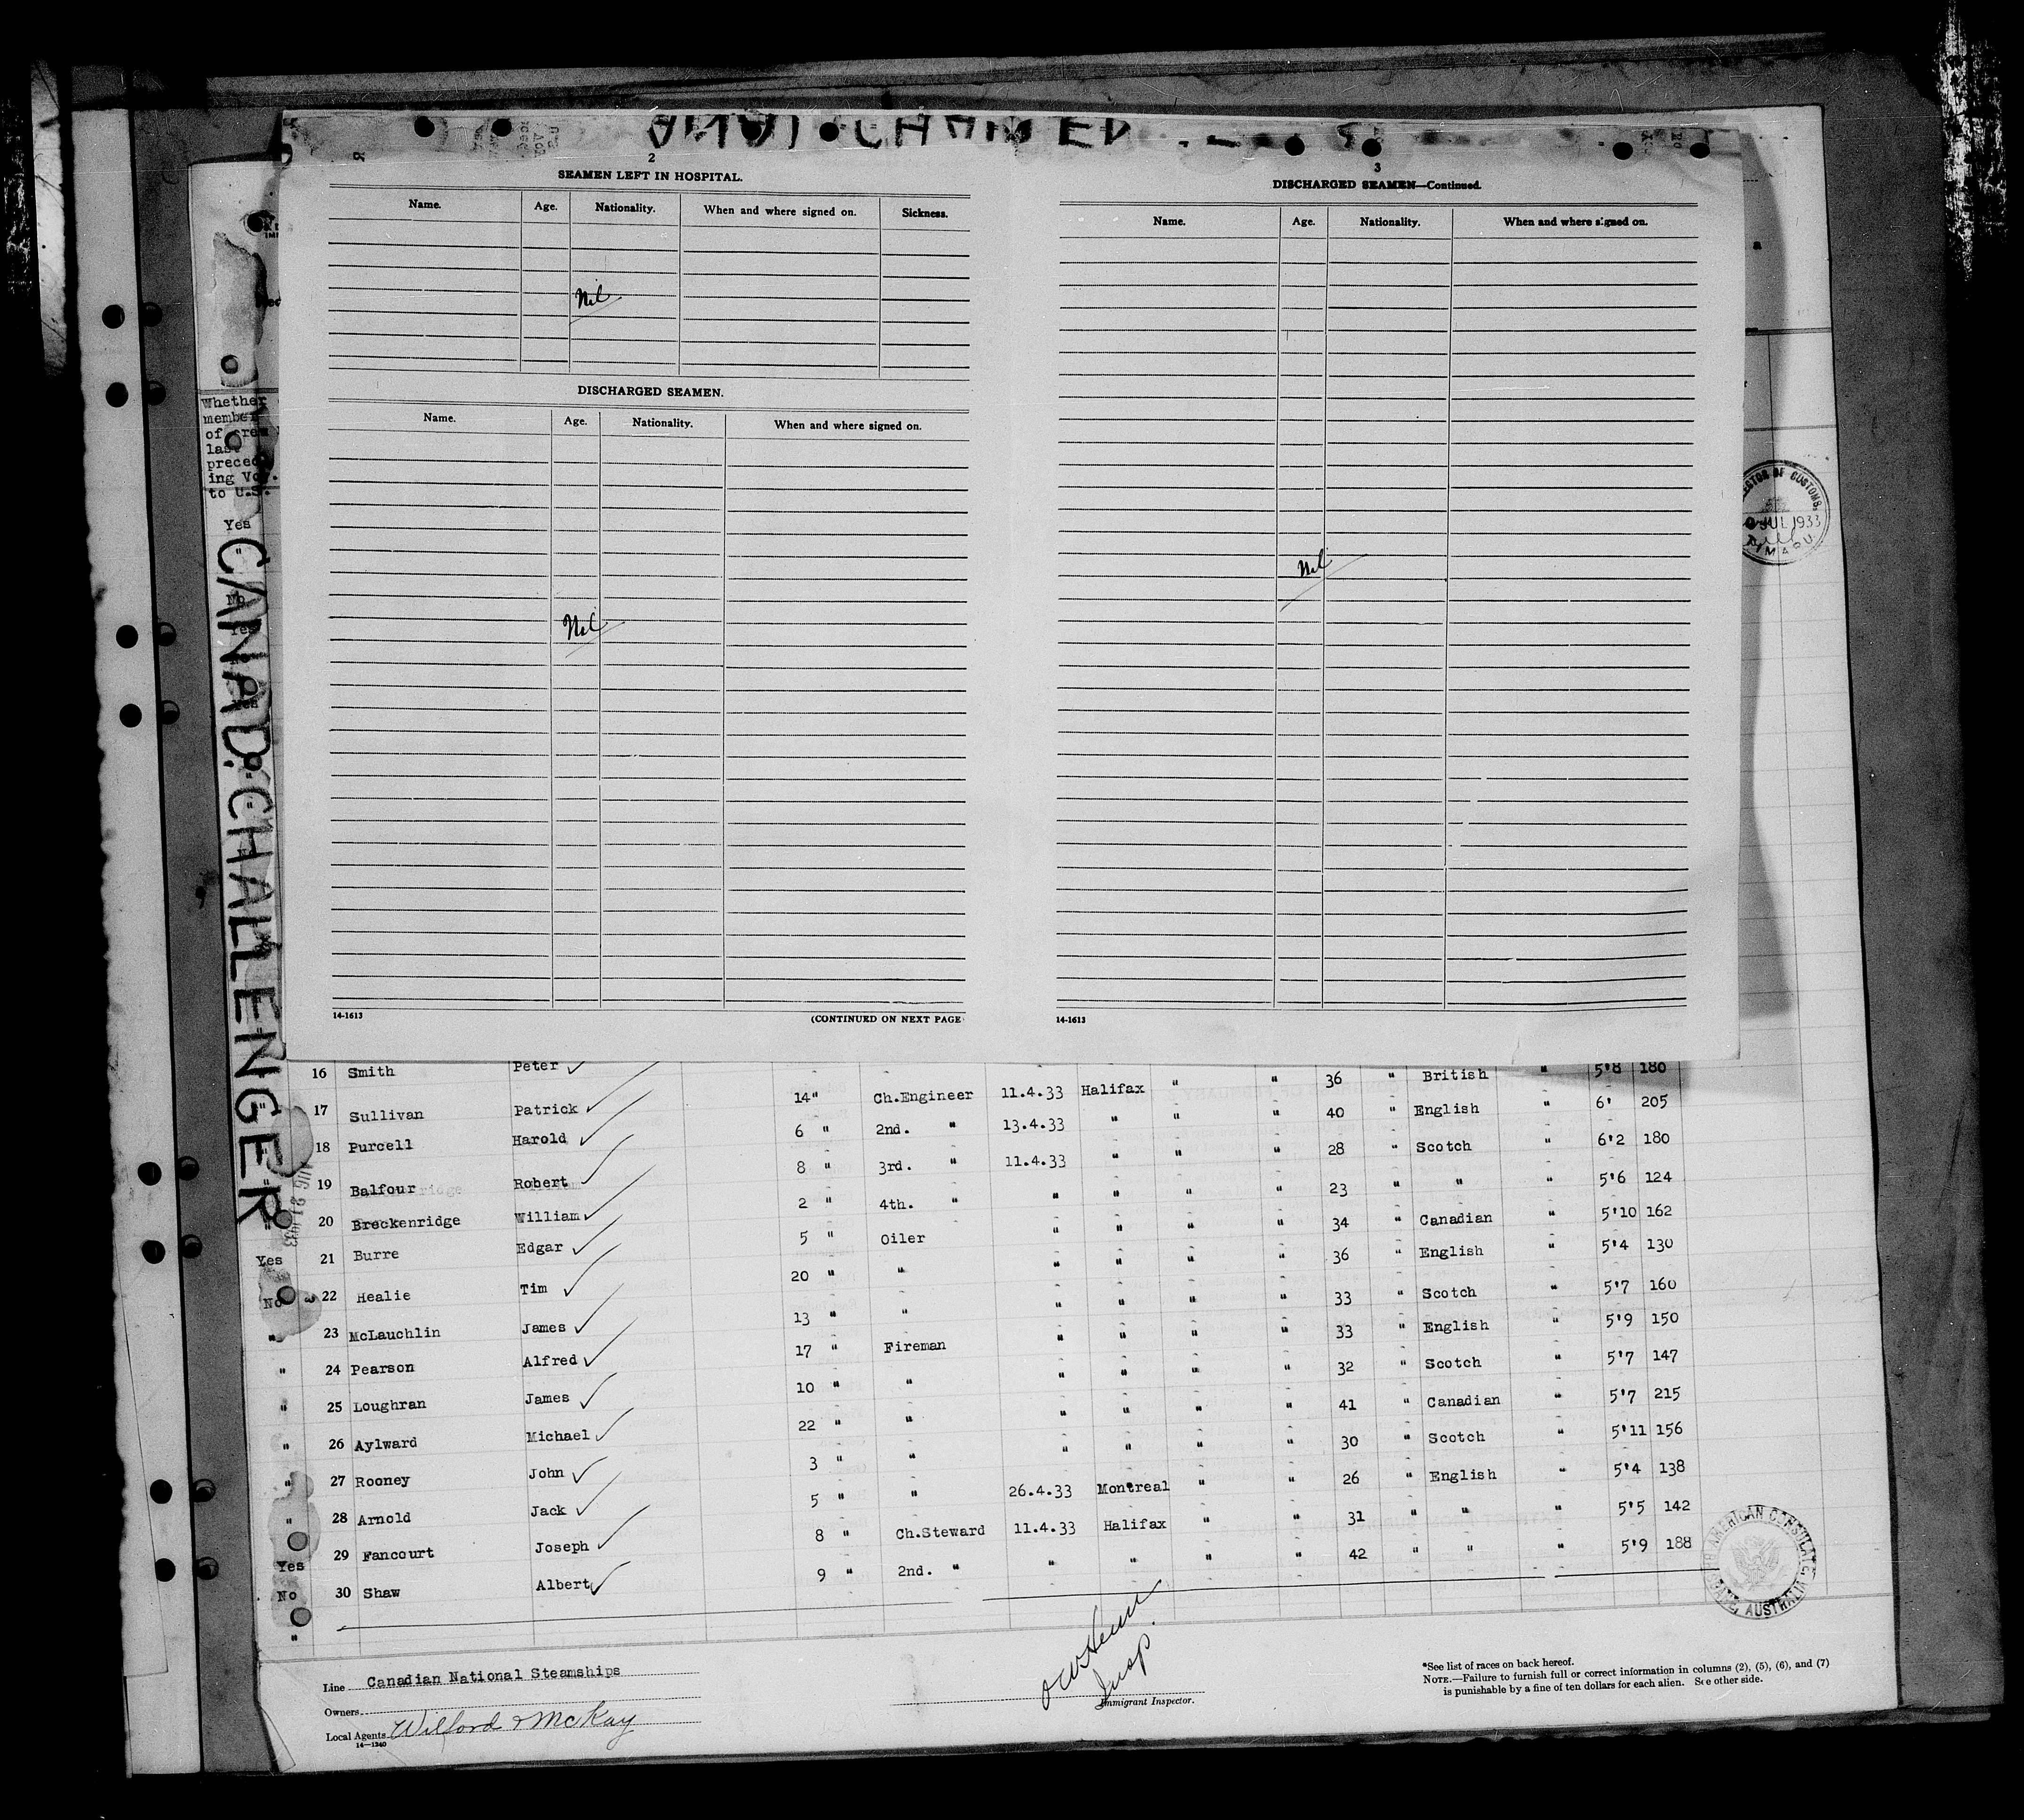 2
SEAMEN LEFT IN HOSPITAL.
Name. Age. Nationality. When and where signed on. Sickness.
Nil
DISCHARGED SEAMEN.
Name. Age. Nationality. When and where signed on.
Nil
14-1613 (CONTINUED ON NEXT PAGE
3
DISCHARGED SEAMEN—Continued.
Name. Age. Nationality. When and where signed on.
Nil
14-1613
Whether
member
of crew
last
preced
ing Voy.
to U.S.
Yes
"
No
Yes
CANAD. CHALLENGER
CUSTOMS
JUL 1933
TIMARU
16 Smith Peter 36 " British 5'8 180
17 Sullivan Patrick 14 " Ch.Engineer 11.4.33 Halifax " " 40 " English " 6' 205
18 Purcell Harold 6 " 2nd. " 13.4.33 " " " 28 " Scotch " 6'2 180
19 Balfour Robert 8 " 3rd. " 11.4.33 " " " 23 " " " 5'6 124
20 Breckenridge William 2 " 4th. " " " " " 34 " Canadian " 5'10 162
Yes 21 Burre Edgar 5 " Oiler " " " " 36 " English " 5'4 130
No 22 Healie Tim 20 " " " " " " 33 " Scotch " 5'7 160
" 23 McLauchlin James 13 " " " " " " 33 " English " 5'9 150
" 24 Pearson Alfred 17 " Fireman " " " " 32 " Scotch " 5'7 147
" 25 Loughran James 10 " " " " " " 41 " Canadian " 5'7 215
" 26 Aylward Michael 22 " " " " " " 30 " Scotch " 5'11 156
" 27 Rooney John 3 " " " " " " 26 " English " 5'4 138
" 28 Arnold Jack 5 " " 26.4.33 Montreal " " 31 " " " 5'5 142
Yes 29 Fancourt Joseph 8 " Ch.Steward 11.4.33 Halifax " " 42 " " " 5'9 188
No 30 Shaw Albert 9 " 2nd. " " " " "
"
AMERICAN CONSULATE
AUSTRALIA
Line Canadian National Steamships
Owners
Local Agents Wilford & McKay
14-1240
Insp.
Immigrant Inspector.
*See list of races on back hereof.
NOTE.—Failure to furnish full or correct information in columns (2), (5), (6), and (7)
is punishable by a fine of ten dollars for each alien. See other side.